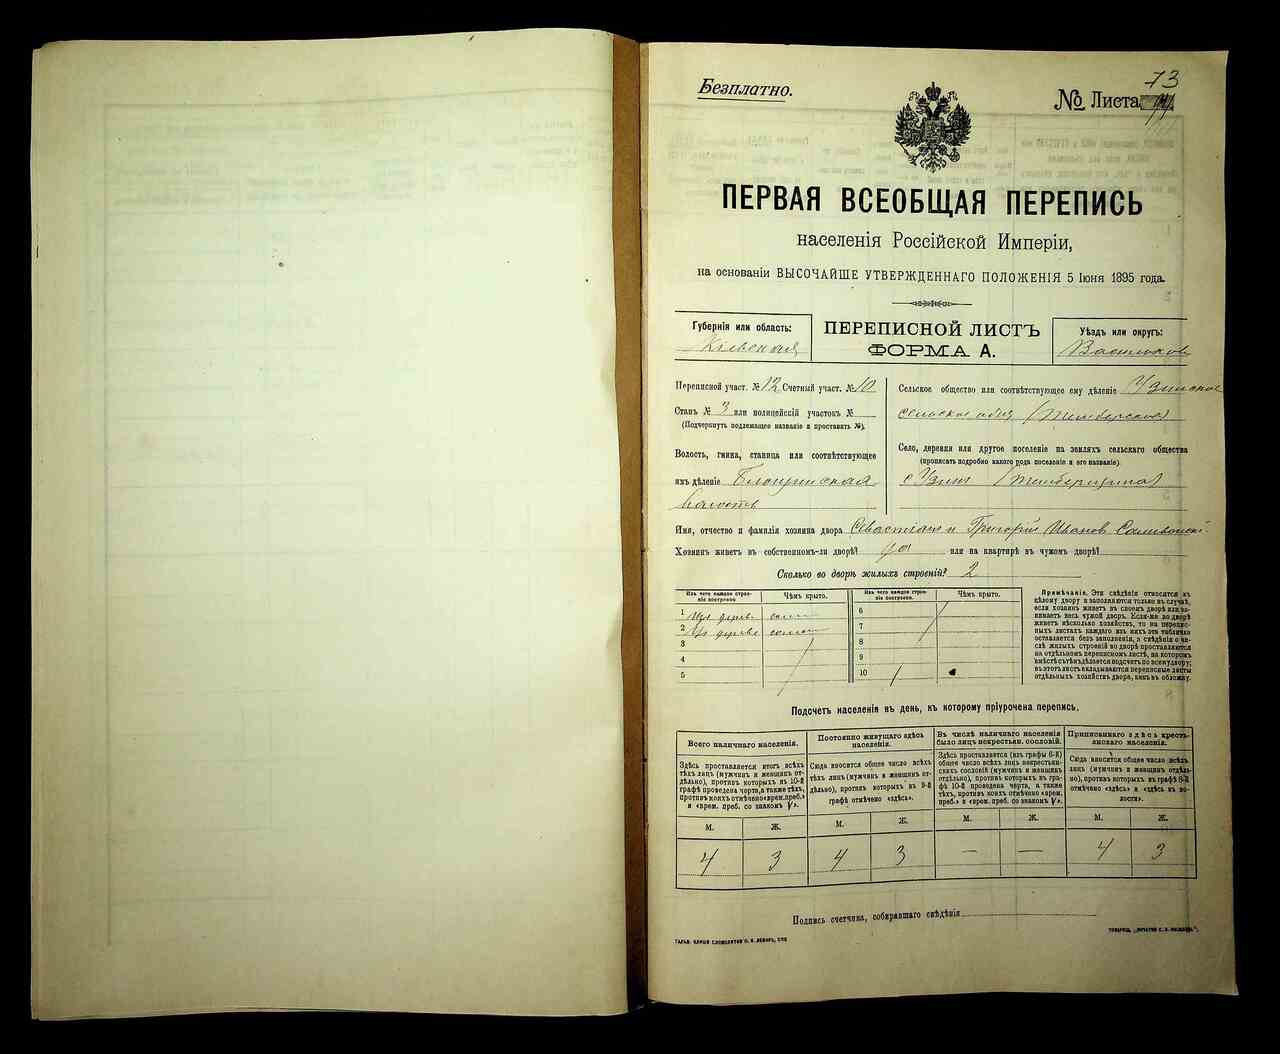 Безплатно.
73
№ Листа
ПЕРВАЯ ВСЕОБЩАЯ ПЕРЕПИСЬ
населенія Россійской Имперіи,
на основаніи ВЫСОЧАЙШЕ УТВЕРЖДЕННАГО ПОЛОЖЕНІЯ 5 Іюня 1895 года.
Губернія или область:
Кіевская
ПЕРЕПИСНОЙ ЛИСТЪ
ФОРМА А.
Уѣздъ или округъ:
Васильков
Переписной участ. № 12 Счетный участ. № 10
Станъ № 3 или полицейскій участокъ №
(Подчеркнуть подлежащее названіе и проставить №).
Волость, гмина, станица или соотвѣтствующее
имъ дѣленіе
волость
Сельское общество или соотвѣтствующее ему дѣленіе Узинское
сельское общ
Село, деревня или другое поселеніе на земляхъ сельскаго общества
(прописать подробно какого рода поселеніе и его названіе).
с Узин
Имя, отчество и фамилія хозяина двора Севастіан и Григорій Иванов
Хозяинъ живетъ въ собственномъ-ли дворѣ? да или на квартирѣ въ чужомъ дворѣ?
Сколько во дворѣ жилыхъ строеній? 2
Изъ чего каждое строеніе построено. Чѣмъ крыто. Изъ чего каждое строеніе построено. Чѣмъ крыто.
1 Из дерев. солом 6
2 Из дерева солом 7
3 8
4 9
5 10
Примѣчаніе. Эти свѣдѣнія относятся къ
цѣлому двору и заполняются только въ случаѣ,
если хозяинъ живетъ въ своемъ дворѣ или занимаетъ
весь чужой дворъ. Если-же во дворѣ
живетъ нѣсколько хозяйствъ, то на переписныхъ
листахъ каждаго изъ нихъ эта табличка
оставляется безъ заполненія, а свѣдѣнія о числѣ
жилыхъ строеній во дворѣ проставляются
на отдѣльномъ переписномъ листѣ, на которомъ
вмѣстѣ съ тѣмъ дѣлается подсчетъ по всему двору;
въ этотъ листъ вкладываются переписные листы
отдѣльныхъ хозяйствъ двора, какъ въ обложку.
Подсчетъ населенія въ день, къ которому пріурочена перепись.
Всего наличнаго населенія.
Здѣсь проставляется итогъ всѣхъ
тѣхъ лицъ (мужчинъ и женщинъ отдѣльно),
противъ которыхъ въ 10-й
графѣ проведена черта, а также тѣхъ,
противъ коихъ отмѣчено «врем. преб.»
и «врем. преб. со знакомъ V».
Постоянно живущаго здѣсь
населенія.
Сюда вносится общее число всѣхъ
тѣхъ лицъ (мужчинъ и женщинъ отдѣльно),
противъ которыхъ въ 9-й
графѣ отмѣчено «здѣсь».
Въ числѣ наличнаго населенія
было лицъ некрестьян. сословій.
Здѣсь проставляется (изъ графы 6-й)
общее число всѣхъ лицъ некрестьянскихъ
сословій (мужчинъ и женщинъ
отдѣльно), противъ которыхъ въ графѣ
10-й проведена черта, а также
тѣхъ, противъ коихъ отмѣчено «врем.
преб.» и «врем. преб. со знакомъ V».
Приписаннаго здѣсь крестьянскаго
населенія.
Сюда вносится общее число всѣхъ
лицъ (мужчинъ и женщинъ отдѣльно),
противъ которыхъ въ графѣ 8-й
отмѣчено «здѣсь» и «здѣсь въ волости».
М. Ж. М. Ж. М. Ж. М. Ж.
4 3 4 3 — — 4 3
Подпись счетчика, собиравшаго свѣдѣнія